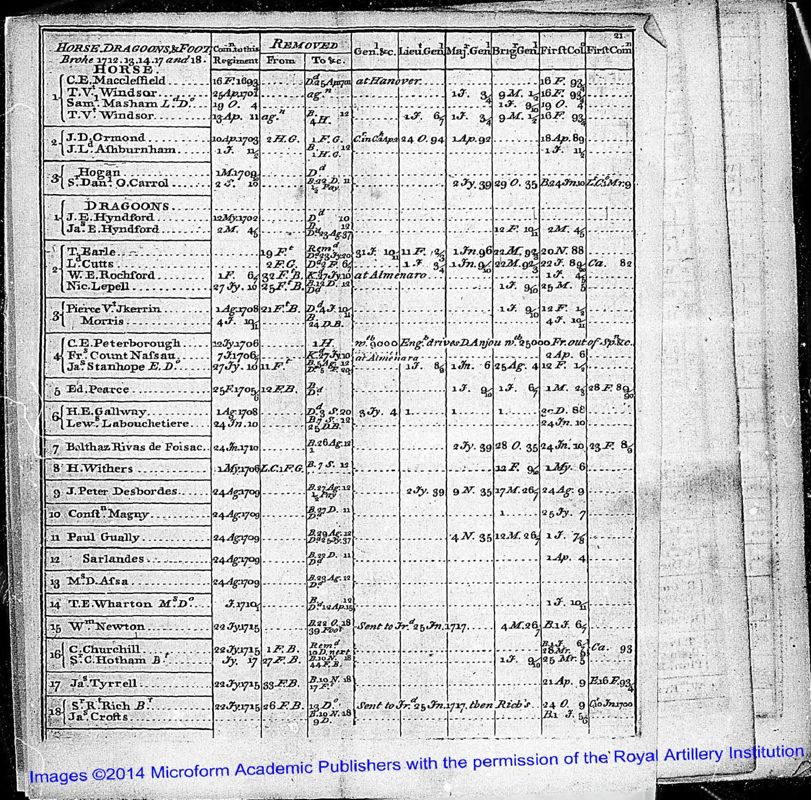 21
HORSE, DRAGOONS, & FOOT, Com.n to this REMOVED Gen.l &c. Lieu.t Gen.l Maj.r Gen.l Brig.r Gen.l First Col. First Com.n
Broke 1712.13.14.17 and 18. Regiment From To &c.
HORSE.
1 C.E. Macclesfield 16 F. 1693 at Hanover. 16 F. 93/4
T.V.t Windsor 25 Ap. 1701 ag.n 1 J. 3/4 9 M. 1/2 16 F. 93/4
Sam.l Masham L.d D.o 19 O. 4 19 O. 4
T.V.t Windsor 13 Ap. 11 ag.n B. 12 4 H. 1 J. 6/7 1 J. 3/4 9 M. 1/2 16 F. 93/4
2 J.D. Ormond 10 Ap. 1703 2 H.G. 1 F.G. 24 O. 94 1 Ap. 92 18 Ap. 89
J.L.d Ashburnham 1 J. 11/2 B. 12 1 H.G. 1 J. 11/2
3 Hogan 1 M. 1709 D.d
S.r Dan.l O. Carrol 2 S. 10 B. 22 D. 11 1/2 Pay. 2 Jy. 39 29 O. 35 B 24 Jn 10
DRAGOONS
1 J.E. Hyndford 12 My. 1702 D.d 10
Ja.s E. Hyndford 2 M. 4/5 12 F. 10/11 2 M. 4/5
2 T. Earle 19 F.t Rem.d 31 J. 10/11 11 F. 2/3 1 Jn. 96 22 M. 92/3 20 N. 88
L.d Cutts 2 F.G. 1 J. 3/4 1 Jn. 9 22 M. 92/3 22 J. 89 Ca. 82
W.E. Rochford 1 F. 6/7 32 F.B. K. 27 Jy. 10 at Almenaro 1 J.
Nic. Lepell 27 Jy. 10 25 F.t B. B. 12 D. 12 1 J. 9/10 25 M. 5
3 Pierce V.t Ikerrin 1 Ag. 1708 21 F.t B. D.d 4 J. 10/11 1 J. 9/10 12 F. 1/2
Morris 4 J. 10/11 B. 24 D.B. 4 J. 10/11
4 C.E. Peterborough 12 Jy. 1706 1 H. w.th 9000 Eng.h drives D. Anjou w.th 25000 Fr. out of Sp.n &c.
Fr.s Count Nassau 7 J. 1706 K. 27 Jy. 10 at Almenara 2 Ap. 6
Ja.s Stanhope E. D.o 27 Jy. 10 11 F.t 1 J. 8/9 1 Jn. 6 25 Ag. 4 12 F. 1/2
5 Ed. Pearce 25 F. 1705/6 12 F.B. B. D.d 1 J. 9/10 1 J. 6/7 1 M. 2/3 28 F. 89/90
6 H.E. Gallway 1 Ag. 1708 D.d 3 S. 20 3 Jy. 4 1 1 1 88
Lew. Labouchetiere 24 Jn. 10 B. 7 S. 12 25 D.B. 24 Jn. 10
7 Balthaz Rivas de Foisac 24 Jn. 1710 B. 26 Ag. 12 2 Jy. 39 28 O. 35 24 Jn. 10 23 F. 8/9
8 H. Withers 1 My. 1706 L.C. 1 F.G. B. 7 S. 12 12 F. 9/10 1 My. 6
9 J. Peter Desbordes 24 Ag. 1709 B. 27 Ag. 12 1/2 Pay 2 Jy. 39 9 N. 35 17 M. 26/7 24 Ag. 9
10 Const.n Magny 24 Ag. 1709 B. 27 D. 11 D.d 1 25 Jy. 7
11 Paul Gually 24 Ag. 1709 B. 29 Ag. 12 4 N. 35 12 M. 26/7 1 J. 7/8
12 Sarlandes 24 Ag. 1709 B. 27 D. 11 D.d 1 Ap. 4
13 M.s D. Assa 24 Ag. 1709 B. 23 Ag. 12 D.d
14 T.E. Wharton M.s D.o J. 1710 B. 12 D.d 12 Ap. 15 1 J. 10/11
15 W.m Newton 22 Jy. 1715 B. 22 O. 18 39 Foot Sent to Ir.d 25 Jn. 1717. 4 M. 26/7 B. 1 J. 6/7
16 C. Churchill 22 Jy. 1715 1 F.B. Rem.d 28 Mr. Ca. 93
S.r C. Hotham B.t Jy. 17 27 F.B. B. 10 N. 18 44 F.B. 1 J. 9/10 25 Mr. 5
17 Ja.s Tyrrell 22 Jy. 1715 33 F.B. B. 10 N. 18 17 F.t 21 Ap. 9 E 16 F. 93/4
18 S.r R.t Rich B.t 22 Jy. 1715 26 F.B. 13 D.o Sent to Ir.d 25 Jn. 1717, then Rich's. 24 O. 9 Jn 1700
Ja.s Crofts B. 10 N. 18 9 D. B. 1 J. 5/6
Images ©2014 Microform Academic Publishers with the permission of the Royal Artillery Institution